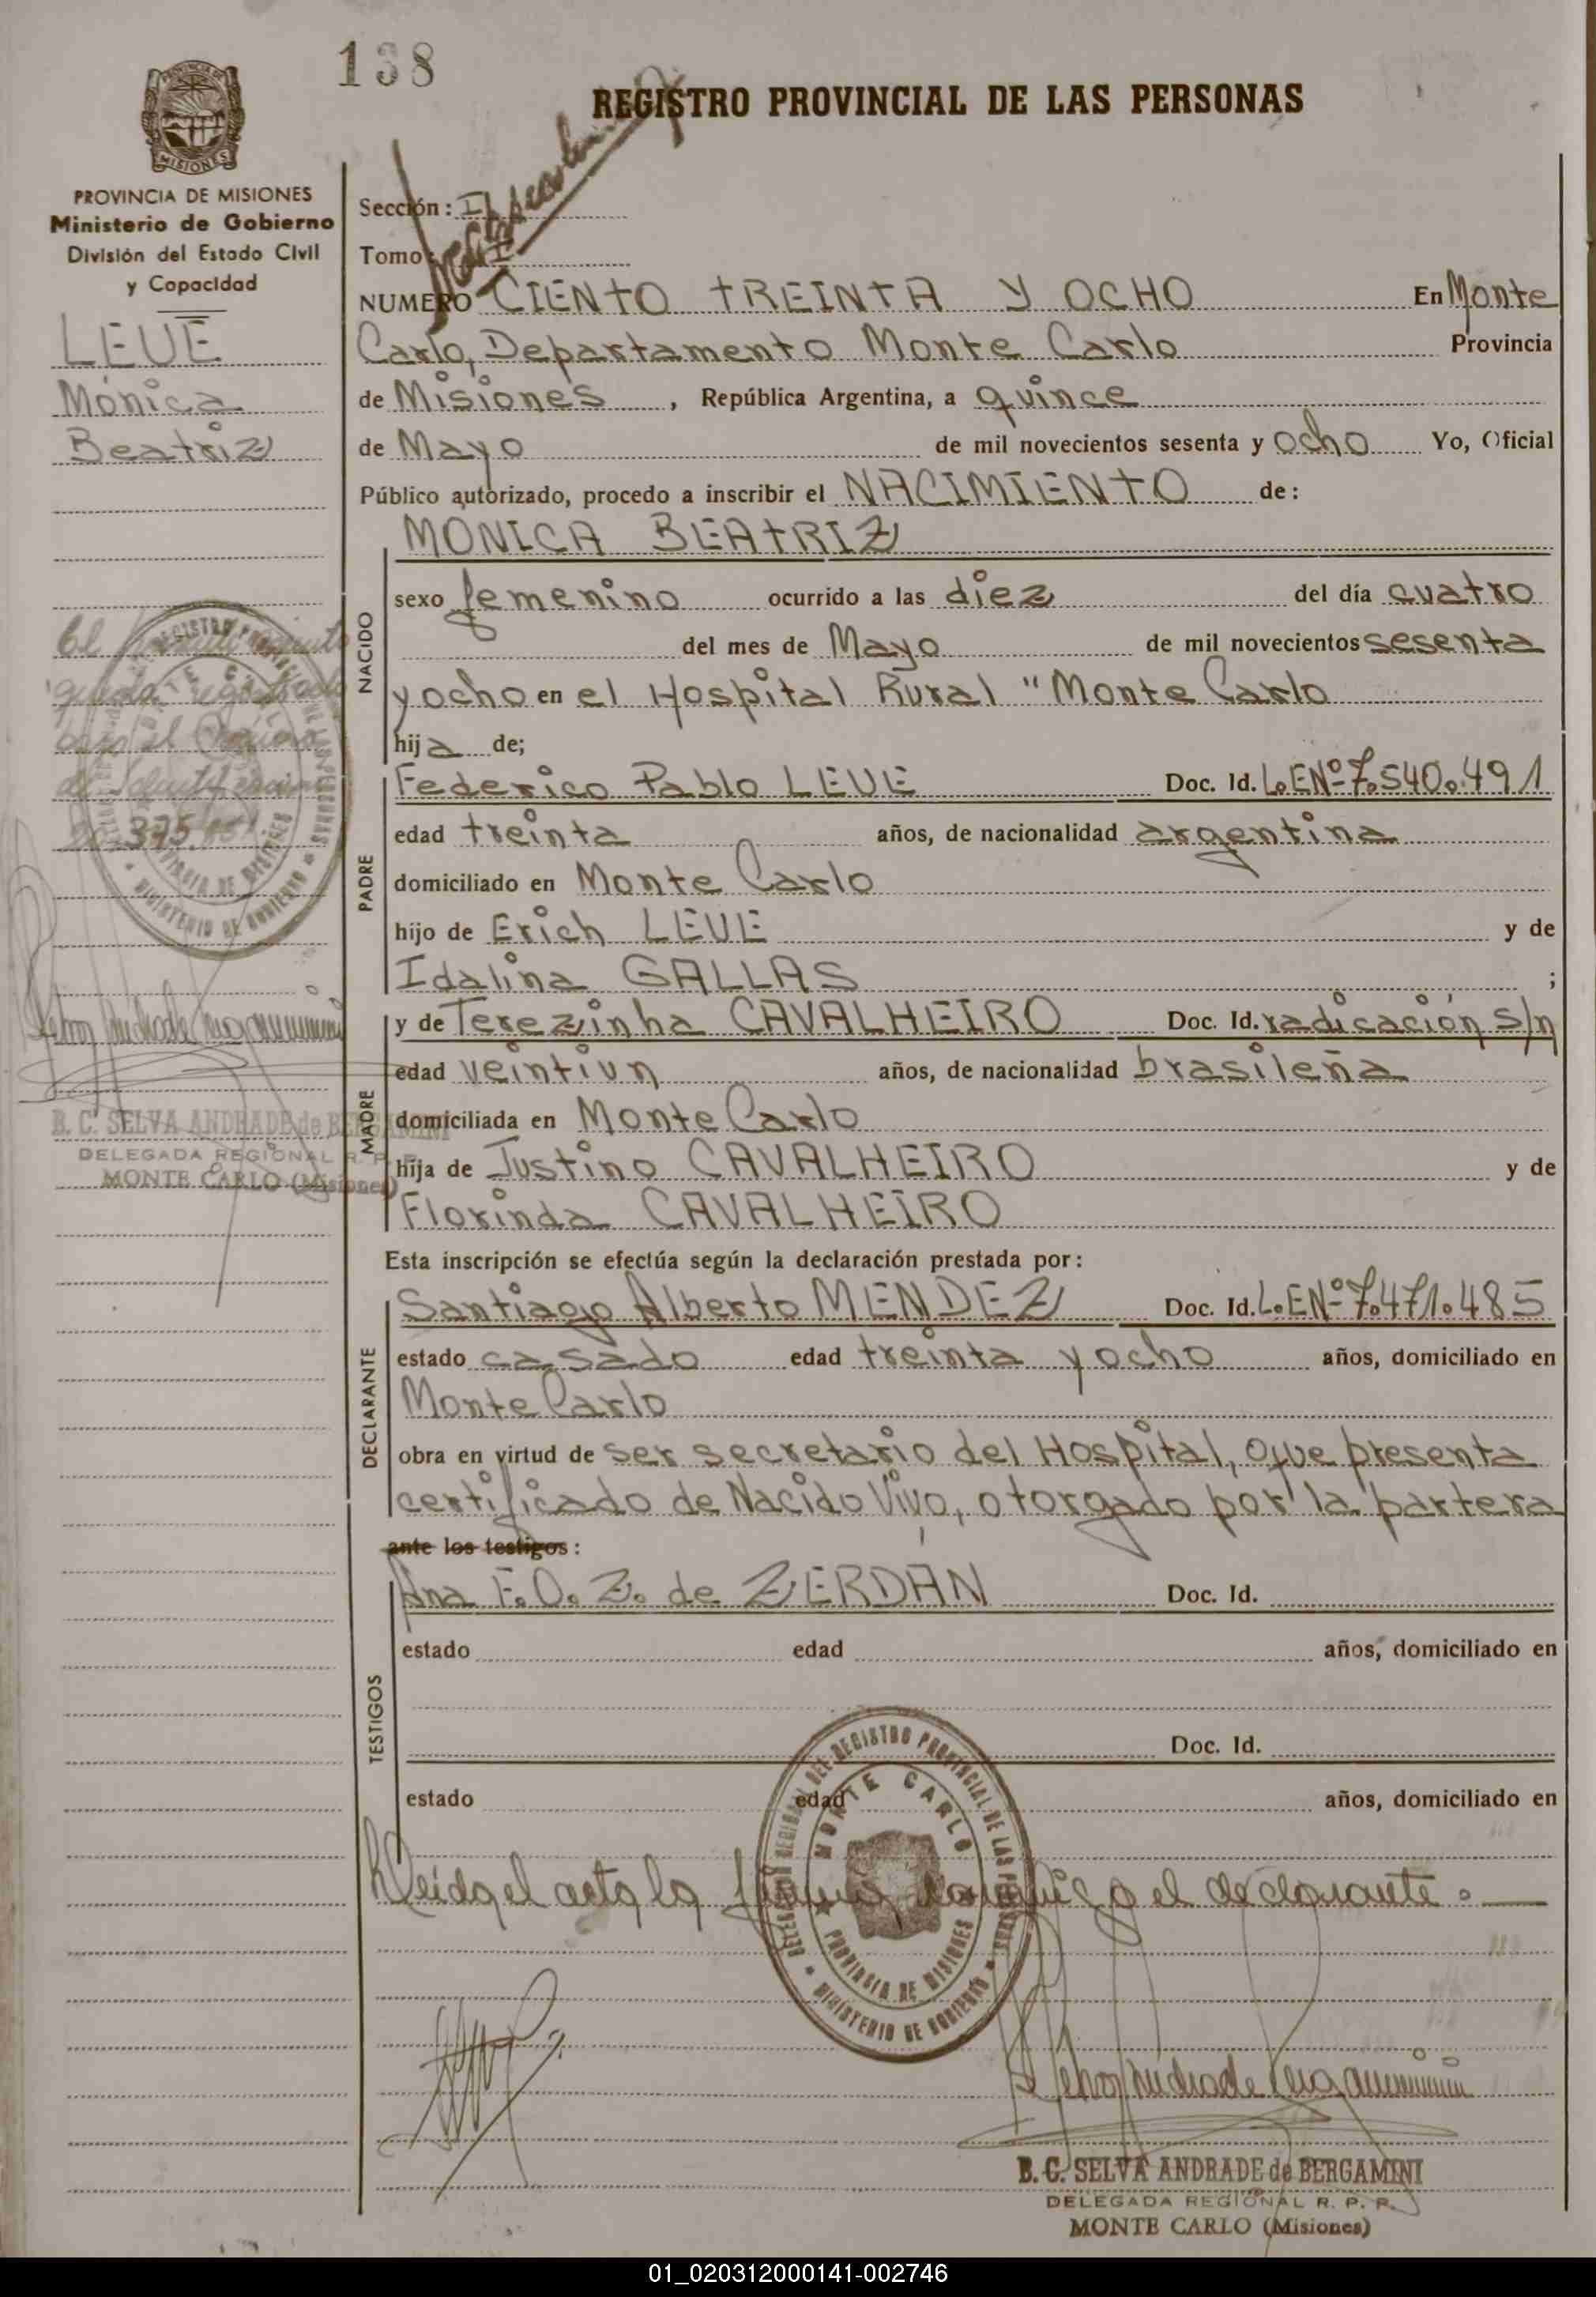 138
REGISTRO PROVINCIAL DE LAS PERSONAS
MISIONES
PROVINCIA DE MISIONES
Ministerio de Gobierno
División del Estado Civil
y Capacidad
LEUE
Mónica
Beatriz
Sección: II
Tomo: I
NUMERO CIENTO TREINTA Y OCHO En Monte
Carlo, Departamento Monte Carlo Provincia
de Misiones, República Argentina, a quince
de Mayo de mil novecientos sesenta y ocho Yo, Oficial
Público autorizado, procedo a inscribir el NACIMIENTO de:
NACIDO
MONICA BEATRIZ
sexo femenino ocurrido a las diez del día cuatro
del mes de Mayo de mil novecientos sesenta
y ocho en el Hospital Rural "Monte Carlo
hija de;
PADRE
Federico Pablo LEUE Doc. Id. L.E Nº 7.540.491
edad treinta años, de nacionalidad argentina
domiciliado en Monte Carlo
hijo de Erich LEUE y de
Idalina GALLAS ;
MADRE
y de Terezinha CAVALHEIRO Doc. Id. radicación s/n
edad veintiun años, de nacionalidad brasileña
domiciliada en Monte Carlo
hija de Justino CAVALHEIRO y de
Florinda CAVALHEIRO
Esta inscripción se efectúa según la declaración prestada por:
DECLARANTE
Santiago Alberto MENDEZ Doc. Id. L.E Nº 7.471.485
estado casado edad treinta y ocho años, domiciliado en
Monte Carlo
obra en virtud de ser secretario del Hospital, que presenta
certificado de Nacido Vivo, otorgado por la partera
ante los testigos:
TESTIGOS
Ana F.O.Z. de ZERDAN Doc. Id.
estado edad años, domiciliado en
Doc. Id.
estado edad años, domiciliado en
Leída el acta la firma conmigo el declarante.
El
queda registrado
bajo el
de
375
B. C. SELVA ANDRADE de BERGAMINI
DELEGADA REGIONAL R. P. P.
MONTE CARLO (Misiones)
DELEGACION REGIONAL DEL REGISTRO PROVINCIAL DE LAS PERSONAS
MONTE CARLO
PROVINCIA DE MISIONES
MINISTERIO DE GOBIERNO
B. C. SELVA ANDRADE de BERGAMINI
DELEGADA REGIONAL R. P. P.
MONTE CARLO (Misiones)
01_020312000141-002746